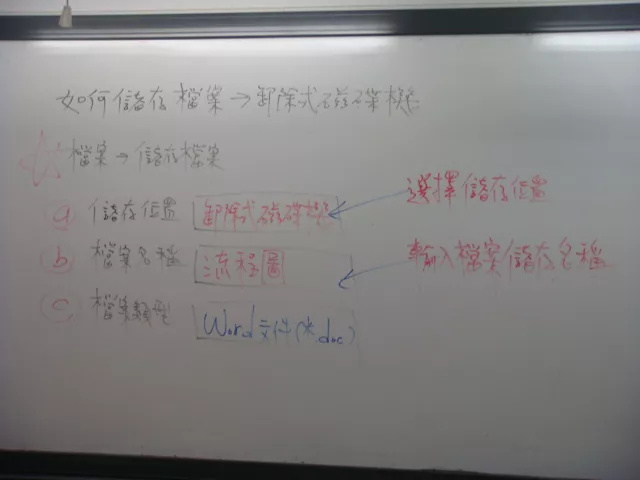 如何儲存檔案→卸除式磁碟機
☆檔案→儲存檔案
ⓐ 儲存位置 卸除式磁碟機 ← 選擇儲存位置
ⓑ 檔案名稱 流程圖 ← 輸入檔案儲存名稱
ⓒ 檔案類型 Word文件(*.doc)